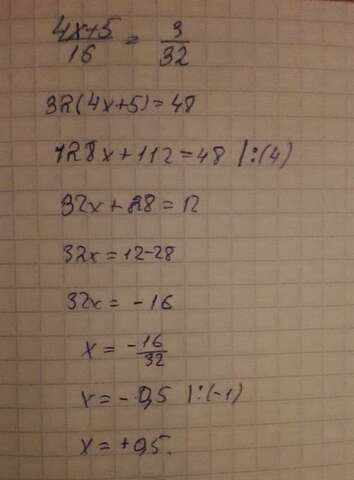 4x+5/16 = 3/32
32(4x+5)=48
128x+112=48 |:(4)
32x+28=12
32x=12-28
32x=-16
x=-16/32
x=-0,5 |:(-1)
x=+0,5.